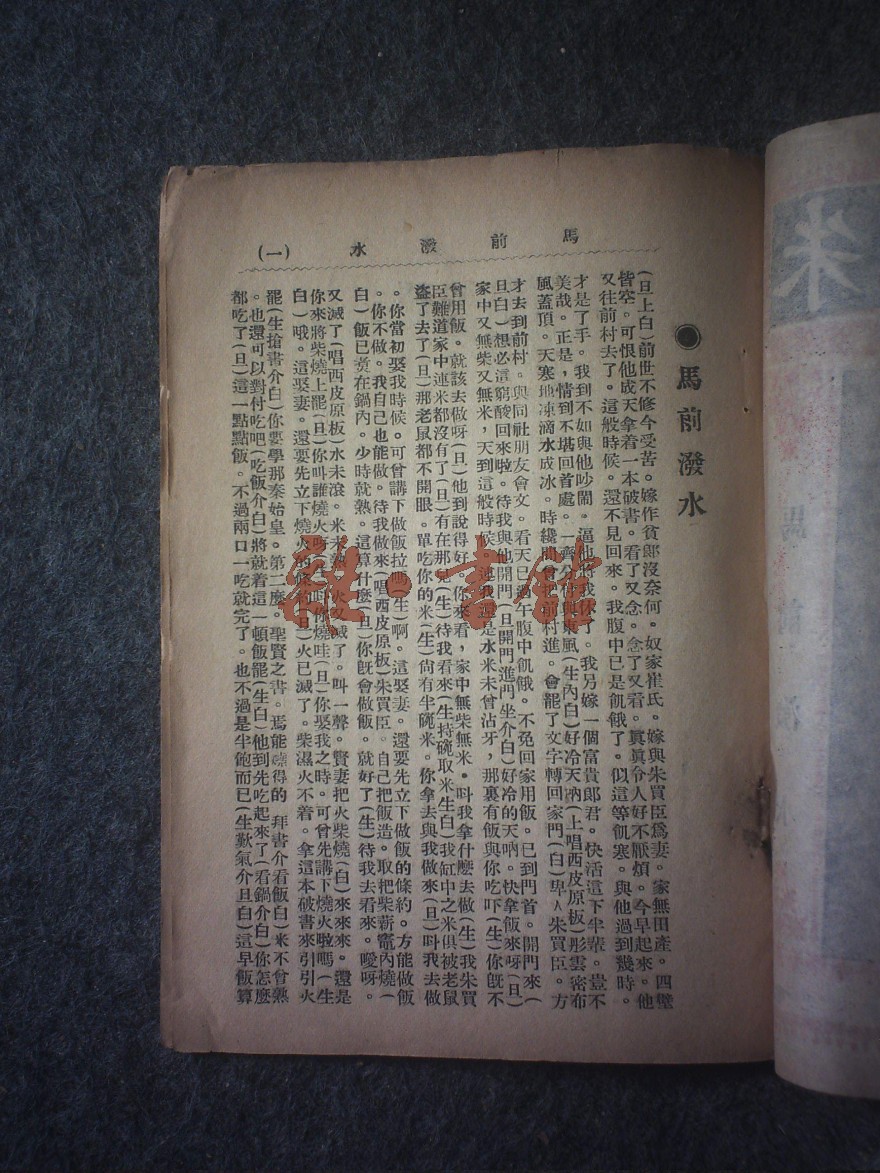 馬前潑水 (一)
●馬前潑水
(旦上白)前世不修今受苦。嫁作貧郞沒奈何。奴家崔氏。嫁與朱買臣爲妻。家無田產。四壁
皆空。可恨他成天拿着一本破書。看了又念。念了又看。眞眞令人好不厭煩。今早起來。他
又往前村去了。這般時候。還不見回來。我腹中已是飢餓了。似這等飢寒。與他過到幾時。
才是了手。我到不如與他吵鬧。逼他將我休了。我另嫁一個富貴郞君。快活這下半輩。豈不
美哉。正是,情到不堪回首處。一齊分付與東風(生內白)好冷天吶(上唱西皮原板)彤雲密布
風蓋頂。天寒地凍滴水成冰。時纔間曾向前村進。會罷了文字轉回家門(白)卑人朱買臣。方
才去到前村。與同社朋友會文。看天已過午腹中飢餓。不免回家用飯。已到門首。開門來(
旦白)想必這窮酸回來啦。待我與他開門(旦開門進門坐介白)好冷的天吶。快拿飯來呀(旦)
家中又無柴又無米,天到這般時候。連我還是水米未曾沾牙,那裏有飯與你吃吓(生)你旣不
曾用飯。就該去做呀(旦)他到說得好。你來看,家中無柴無米。呌我拿什麽去做(生)我朱買
臣難道家中連米都沒有了(旦)有在那(生)待我看來(生持碗取米生白)我缸中之米俱被老鼠
盜了去了(旦)那老鼠都不開眼。單吃你的米(生)尙有半碗米。你拿去與我做來(旦)呌我去做
。你當初娶我時候。可曾講下做飯拉嗎(生)啊。這娶妻。還要先立下做飯的條約。方能做飯
。你不做。我自己也能做。待我做來(唱西皮原板)朱買臣。自己把飯造。取把柴薪竈內燒(
白)飯已煑在鍋內。少時就熟。這算什麽(旦)你旣會做飯。就好了(生)待我去看來。噯呀。
又滅了(唱西皮原板)水未滾。米未熟。火又滅了。呌一聲。賢妻把火柴燒(白)來來來。還是
你來將柴燒上罷(旦)你呌誰燒火呀(生)呌你燒哇(旦)你娶我之時。可曾先講下燒火啦嗎(生
白)哦。這娶妻。還要先立下燒火的條約(旦)火已滅了。柴濕火不着。拿這本破書來引引火
罷(生搶書介白)你要學那秦始皇。第二麽。聖賢之書。焉能燒得的 拜書介看飯白)米不曾熟
。也還可以對付吃吧(吃飯介白)將就着這一頓飯罷(生白)他到先吃起來了(看鍋介白)你怎麽
都吃了(旦)這一點點飯。不過兩口一吃就完了。也不過是半飽而已(生歎氣介旦白)這早飯算
朱